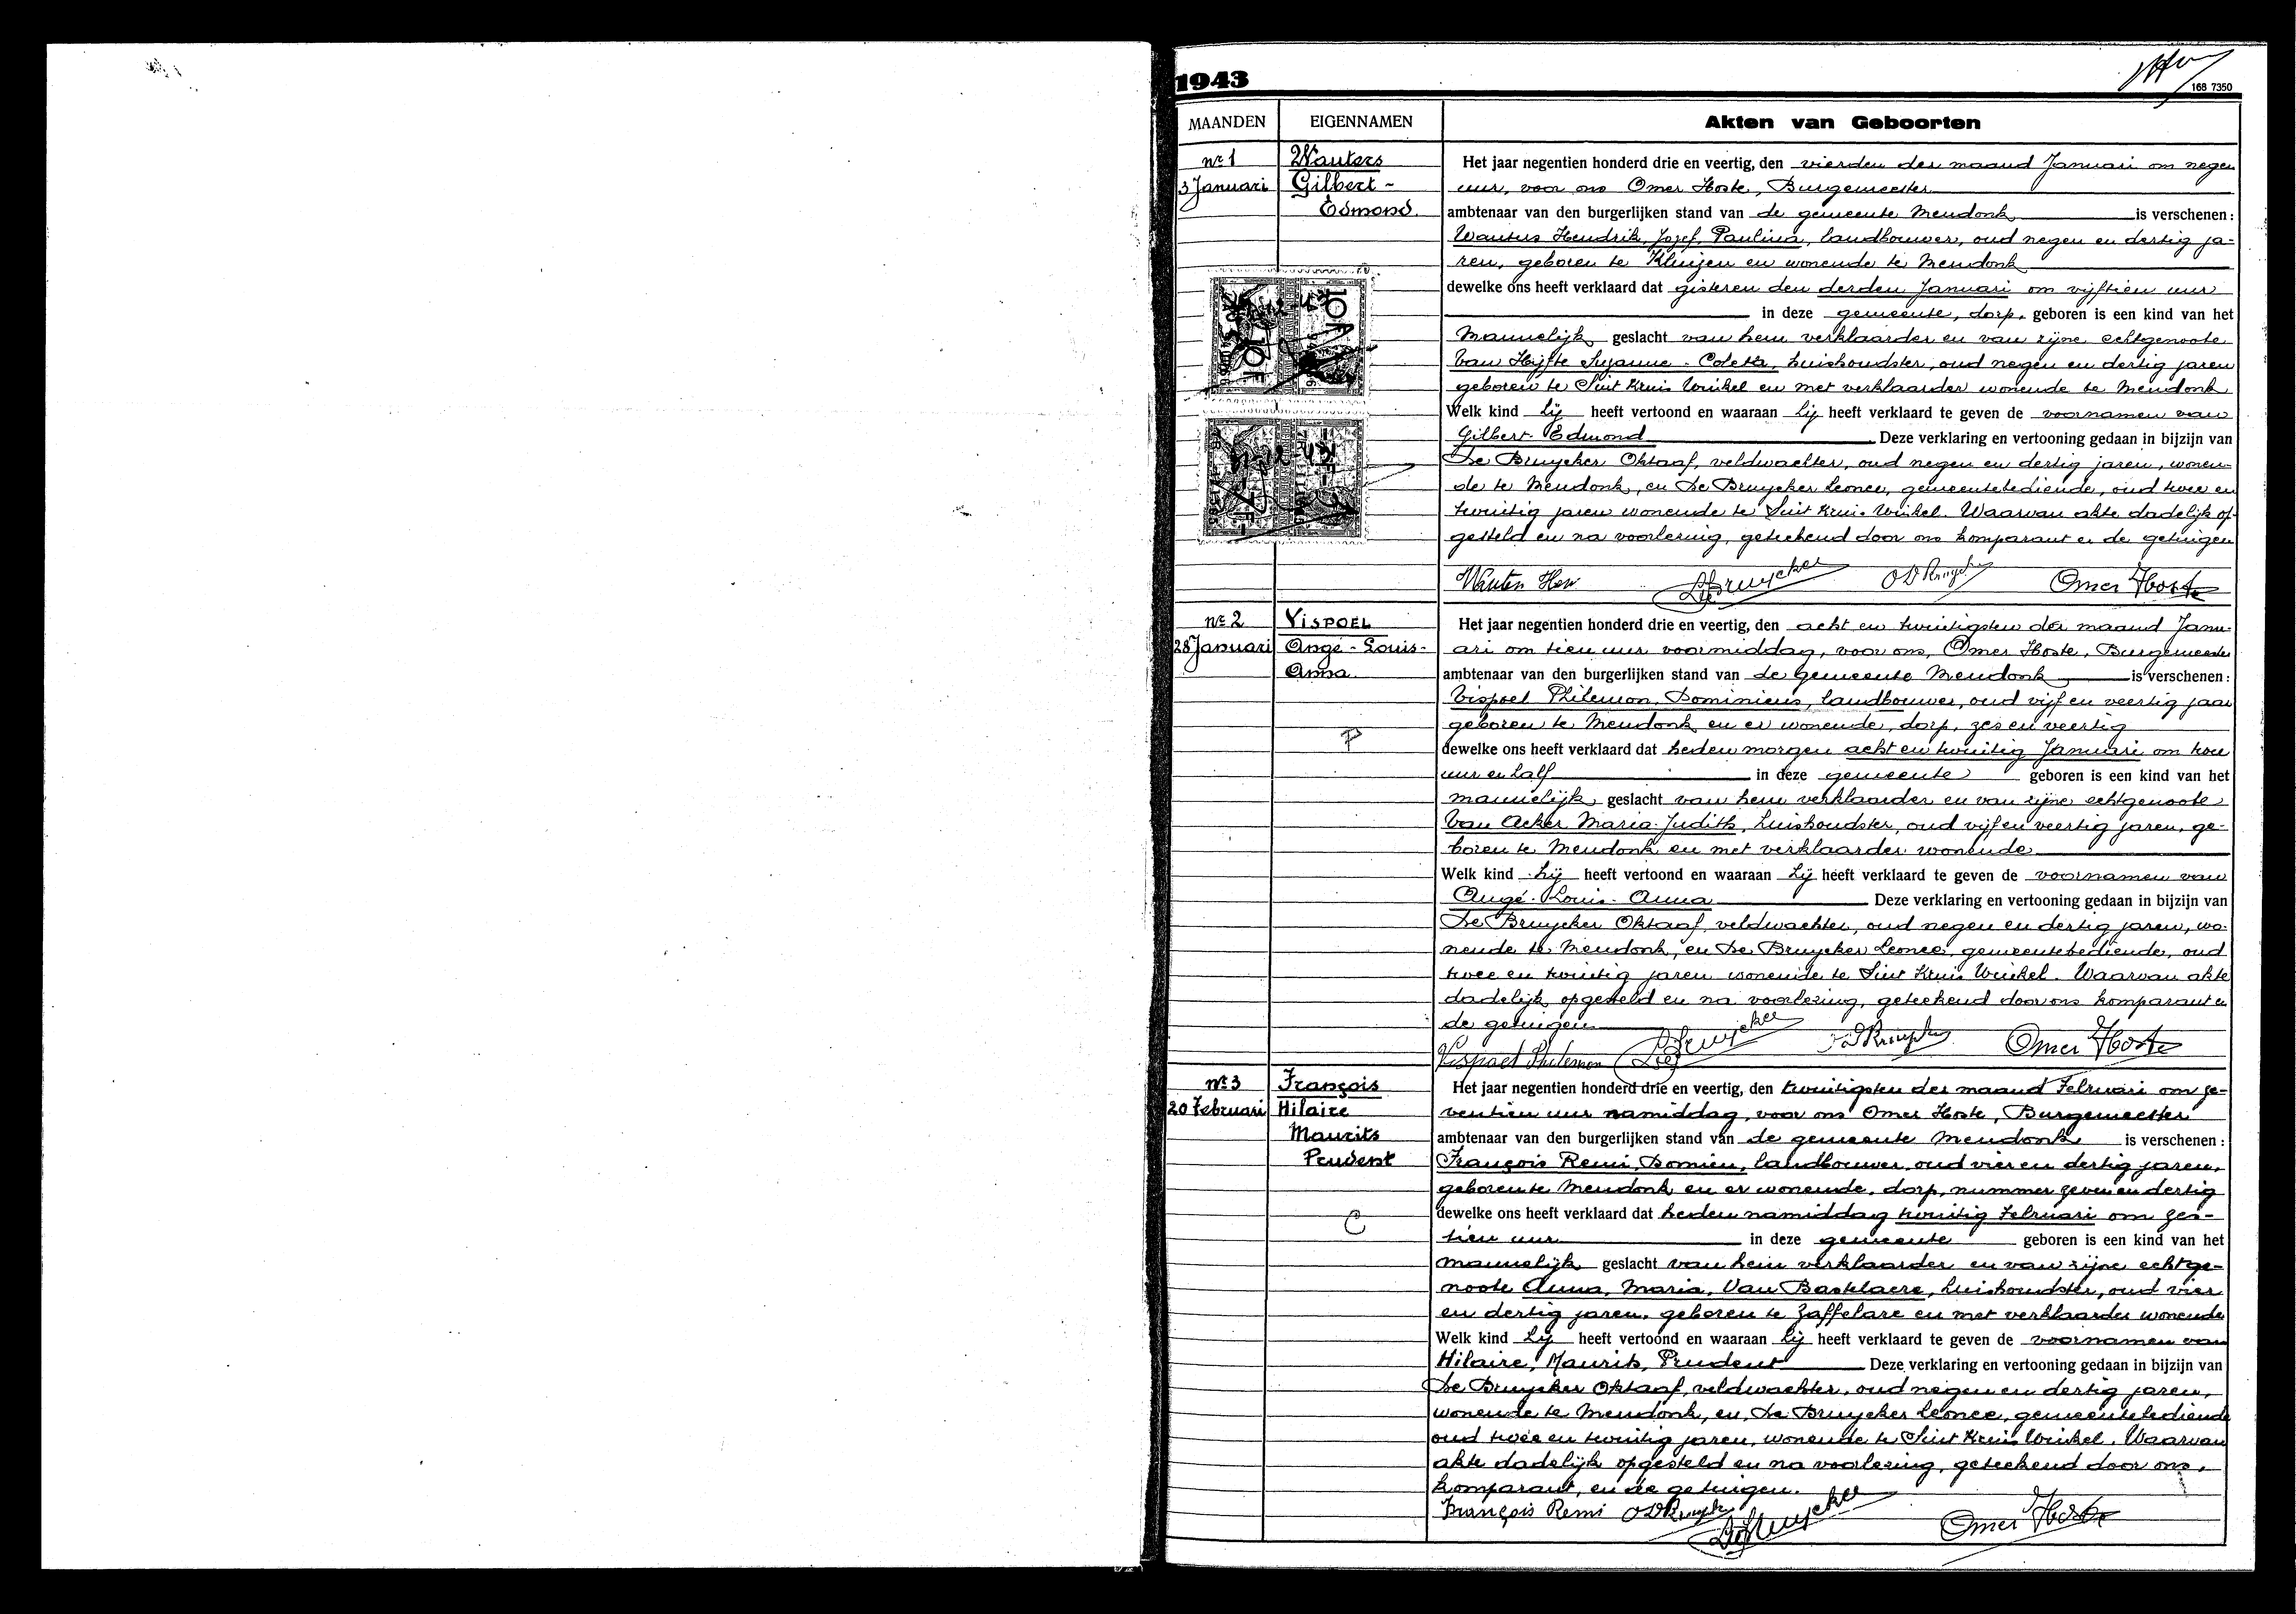 1943
168 7350
MAANDEN EIGENNAMEN Akten van Geboorten
nr 1 Wauters Het jaar negentien honderd drie en veertig, den vierden der maand Januari om negen
3 Januari Gilbert- uur, voor ons Omer Hoste, Burgemeester
Edmond. ambtenaar van den burgerlijken stand van de gemeente Mendonk is verschenen:
Wauters Hendrik, Jozef, Paulina, landbouwer, oud negen en dertig ja-
ren, geboren te Kluizen en wonende te Mendonk
dewelke ons heeft verklaard dat gisteren den derden Januari om vijftien uur
in deze gemeente, dorp, geboren is een kind van het
Mannelijk geslacht van hem verklaarder en van zijne echtgenoote
Van Hijfte Suzanne-Coleta, huishoudster, oud negen en dertig jaren
geboren te Sint Kruis Winkel en met verklaarder wonende te Mendonk
Welk kind hij heeft vertoond en waaraan hij heeft verklaard te geven de voornamen van
Gilbert-Edmond Deze verklaring en vertooning gedaan in bijzijn van
De Bruycker Oktaaf, veldwachter, oud negen en dertig jaren, wonen-
de te Mendonk, en De Bruycker Leonce, gemeentebediende, oud twee en
twintig jaren wonende te Sint Kruis Winkel. Waarvan akte dadelijk op-
gesteld en na voorlezing, geteekend door ons komparant en de getuigen
Wauters Hen DBruycker O D Bruycker Omer Hoste
nr 2 VISPOEL Het jaar negentien honderd drie en veertig, den acht en twintigsten der maand Janu-
28 Januari Angé-Louis- ari om tien uur voormiddag, voor ons, Omer Hoste, Burgemeester
Anna. ambtenaar van den burgerlijken stand van de gemeente Mendonk is verschenen:
Vispoel Philemon, Dominicus, landbouwer, oud vijf en veertig jaar
geboren te Mendonk en er wonende, dorp, zes en veertig
P dewelke ons heeft verklaard dat heden morgen acht en twintig Januari om twee
uur en half in deze gemeente geboren is een kind van het
mannelijk geslacht van hem verklaarder en van zijne echtgenoote
Van Acker Maria-Judith, huishoudster, oud vijf en veertig jaren, ge-
boren te Mendonk en met verklaarder wonende
Welk kind hij heeft vertoond en waaraan hij heeft verklaard te geven de voornamen van
Angé-Louis-Anna Deze verklaring en vertooning gedaan in bijzijn van
De Bruycker Oktaaf, veldwachter, oud negen en dertig jaren, wo-
nende te Mendonk, en De Bruycker Leonce, gemeentebediende, oud
twee en twintig jaren wonende te Sint Kruis Winkel. Waarvan akte
dadelijk opgesteld en na voorlezing, geteekend door ons komparant en
de getuigen
Vispoel Philemon DBruycker O D Bruycker Omer Hoste
nr 3 François Het jaar negentien honderd drie en veertig, den twintigsten der maand Februari om ze-
20 Februari Hilaire ventien uur namiddag, voor ons Omer Hoste, Burgemeester
Maurits ambtenaar van den burgerlijken stand van de gemeente Mendonk is verschenen:
Prudent François Remi, Domien, landbouwer, oud vier en dertig jaren,
geboren te Mendonk en er wonende, dorp, nummer zeven en dertig
C dewelke ons heeft verklaard dat heden namiddag twintig Februari om zes-
tien uur in deze gemeente geboren is een kind van het
mannelijk geslacht van hem verklaarder en van zijne echtge-
noote Anna, Maria, Van Bastelaere, huishoudster, oud vier
en dertig jaren, geboren te Zaffelare en met verklaarder wonende
Welk kind hij heeft vertoond en waaraan hij heeft verklaard te geven de voornamen van
Hilaire, Maurits, Prudent Deze verklaring en vertooning gedaan in bijzijn van
De Bruycker Oktaaf, veldwachter, oud negen en dertig jaren,
wonende te Mendonk, en De Bruycker Leonce, gemeentebediende
oud twee en twintig jaren, wonende te Sint Kruis Winkel. Waarvan
akte dadelijk opgesteld en na voorlezing, geteekend door ons,
komparant, en de getuigen.
François Remi O D Bruycker DBruycker Omer Hoste